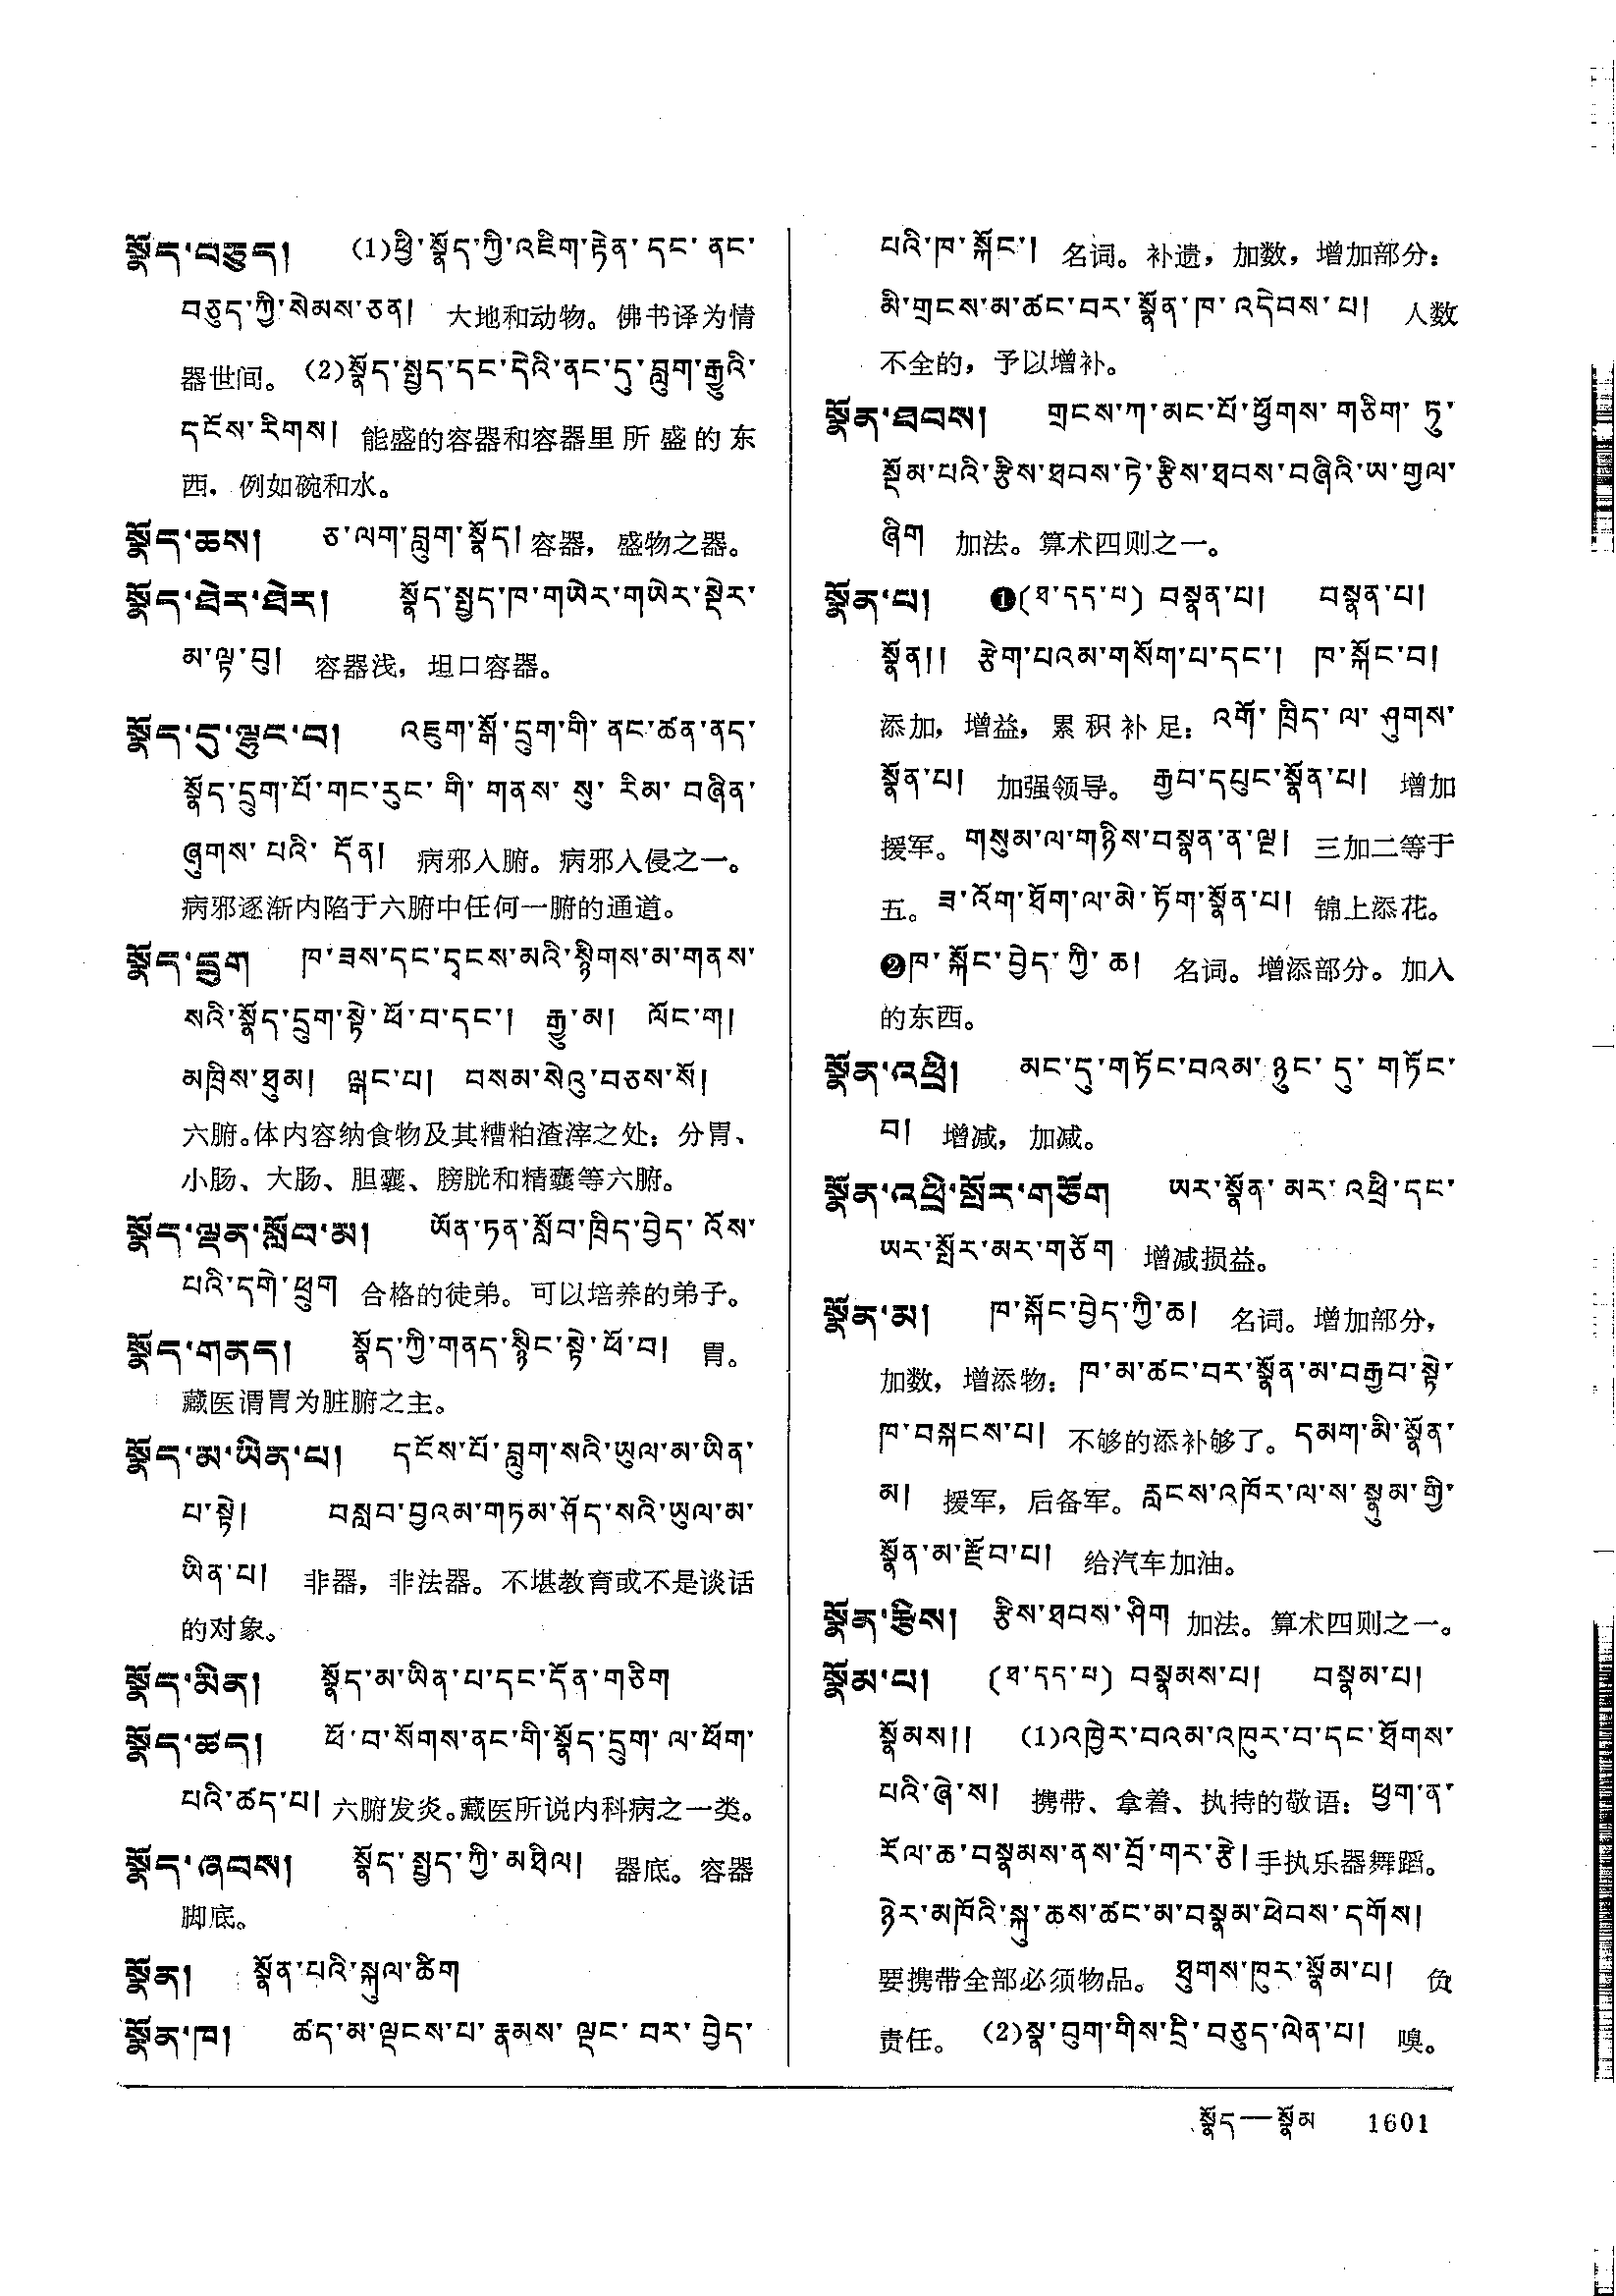 སྣོད་བཅུད། (1)ཕྱི་སྣོད་ཀྱི་འཇིག་རྟེན་དང་ནང་
བཅུད་ཀྱི་སེམས་ཅན། 大地和动物。佛书译为情
器世间。(2)སྣོད་སྤྱད་དང་དེའི་ནང་དུ་བླུག་རྒྱུའི་
དངོས་རིགས། 能盛的容器和容器里所盛的东
西，例如碗和水。
སྣོད་ཆས། ཅ་ལག་བླུག་སྣོད། 容器，盛物之器。
སྣོད་ཐེར་ཐེར། སྣོད་སྤྱད་ཁ་གཡེར་གཡེར་སྡེར་
མ་ལྟ་བུ། 容器浅，坦口容器。
སྣོད་དུ་ལྷུང་བ། འཇུག་སྒོ་དྲུག་གི་ནང་ཚན་ནད་
སྣོད་དྲུག་པོ་གང་རུང་གི་གནས་སུ་རིམ་བཞིན་
ཞུགས་པའི་དོན། 病邪入腑。病邪入侵之一。
病邪逐渐内陷于六腑中任何一腑的通道。
སྣོད་དྲུག ཁ་ཟས་དང་དྭངས་མའི་སྙིགས་མ་གནས་
སའི་སྣོད་དྲུག་སྟེ་ཕོ་བ་དང་། རྒྱུ་མ། ལོང་ག།
མཁྲིས་ཐུམ། ལྒང་པ། བསམ་སེའུ་བཅས་སོ།
六腑。体内容纳食物及其糟粕渣滓之处；分胃、
小肠、大肠、胆囊、膀胱和精囊等六腑。
སྣོད་ལྡན་སློབ་མ། ཡོན་ཏན་སློབ་ཁྲིད་བྱེད་འོས་
པའི་དགེ་ཕྲུག 合格的徒弟。可以培养的弟子。
སྣོད་གནད། སྣོད་ཀྱི་གནད་སྙིང་སྟེ་ཕོ་བ། 胃。
藏医谓胃为脏腑之主。
སྣོད་མ་ཡིན་པ། དངོས་པོ་བླུག་སའི་ཡུལ་མ་ཡིན་
པ་སྟེ། བསླབ་བྱའམ་གཏམ་ཤོད་སའི་ཡུལ་མ་
ཡིན་པ། 非器，非法器。不堪教育或不是谈话
的对象。
སྣོད་མིན། སྣོད་མ་ཡིན་པ་དང་དོན་གཅིག
སྣོད་ཚད། ཕོ་བ་སོགས་ནང་གི་སྣོད་དྲུག་ལ་ཕོག་
པའི་ཚད་པ། 六腑发炎。藏医所说内科病之一类。
སྣོད་ཞབས། སྣོད་སྤྱད་ཀྱི་མཐིལ། 器底。容器
脚底。
སྣོན། སྣོན་པའི་སྐུལ་ཚིག
སྣོན་ཁ། ཚད་མ་ལྡངས་པ་རྣམས་ལྡང་བར་བྱེད་
པའི་ཁ་སྐོང་། 名词。补遗，加数，增加部分：
མི་གྲངས་མ་ཚང་བར་སྣོན་ཁ་འདེབས་པ། 人数
不全的，予以增补。
སྣོན་ཐབས། གྲངས་ཀ་མང་པོ་ཕྱོགས་གཅིག་ཏུ་
སྡོམ་པའི་རྩིས་ཐབས་ཏེ་རྩིས་ཐབས་བཞིའི་ཡ་གྱལ་
ཞིག 加法。算术四则之一。
སྣོན་པ། ❶(ཐ་དད་པ) བསྣན་པ། བསྣན་པ།
སྣོན།། རྩེག་པའམ་གསོག་པ་དང་། ཁ་སྐོང་བ།
添加，增益，累积补足：འགོ་ཁྲིད་ལ་ཤུགས་
སྣོན་པ། 加强领导。 རྒྱབ་དཔུང་སྣོན་པ། 增加
援军。གསུམ་ལ་གཉིས་བསྣན་ན་ལྔ། 三加二等于
五。ཟ་འོག་ཐོག་ལ་མེ་ཏོག་སྣོན་པ། 锦上添花。
❷ཁ་སྐོང་བྱེད་ཀྱི་ཆ། 名词。增添部分。加入
的东西。
སྣོན་འཕྲི། མང་དུ་གཏོང་བའམ་ཉུང་དུ་གཏོང་
བ། 增减，加减。
སྣོན་འཕྲི་སྤྲོར་གཅོག ཡར་སྣོན་མར་འཕྲི་དང་
ཡར་སྤོར་མར་གཅོག 增减损益。
སྣོན་མ། ཁ་སྐོང་བྱེད་ཀྱི་ཆ། 名词。增加部分，
加数，增添物：ཁ་མ་ཚང་བར་སྣོན་མ་བརྒྱབ་སྟེ་
ཁ་བསྐངས་པ། 不够的添补够了。དམག་མི་སྣོན་
མ། 援军，后备军。རླངས་འཁོར་ལ་ས་སྣུམ་གྱི་
སྣོན་མ་རྫོབ་པ། 给汽车加油。
སྣོན་རྩིས། རྩིས་ཐབས་ཤིག 加法。算术四则之一。
སྣོམ་པ། (ཐ་དད་པ) བསྣམས་པ། བསྣམ་པ།
སྣོམས།། (1)འཁྱེར་བའམ་འཁུར་བ་དང་ཐོགས་
པའི་ཞེ་ས། 携带、拿着、执持的敬语：ཕྱག་ན་
རོལ་ཆ་བསྣམས་ནས་བྲོ་གར་རྩེ། 手执乐器舞蹈。
ཉེར་མཁོའི་སྐུ་ཆས་ཚང་མ་བསྣམ་ཕེབས་དགོས།
要携带全部必须物品。 ཐུགས་ཁུར་སྣོམ་པ། 负
责任。 (2)སྣ་བུག་གིས་དྲི་བཅུད་ལེན་པ། 嗅。
སྣོད—སྣོམ 1601